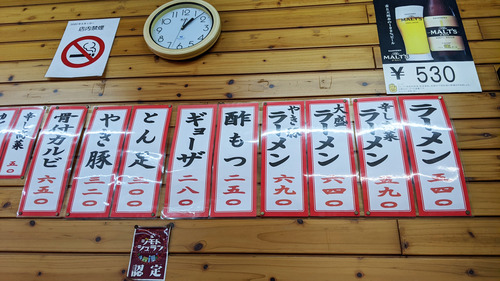 店内禁煙
MALT'S
MALT'S
¥ 530
ラーメン
五四〇
辛し菜
ラーメン
五九〇
大盛
ラーメン
六四〇
ラーメン
六九〇
酢もつ
二五〇
ギョーザ
二八〇
とん足
三〇〇
やさ豚
骨付カルビ
六五〇
辛し菜
五〇
シモト
シュラン
認定